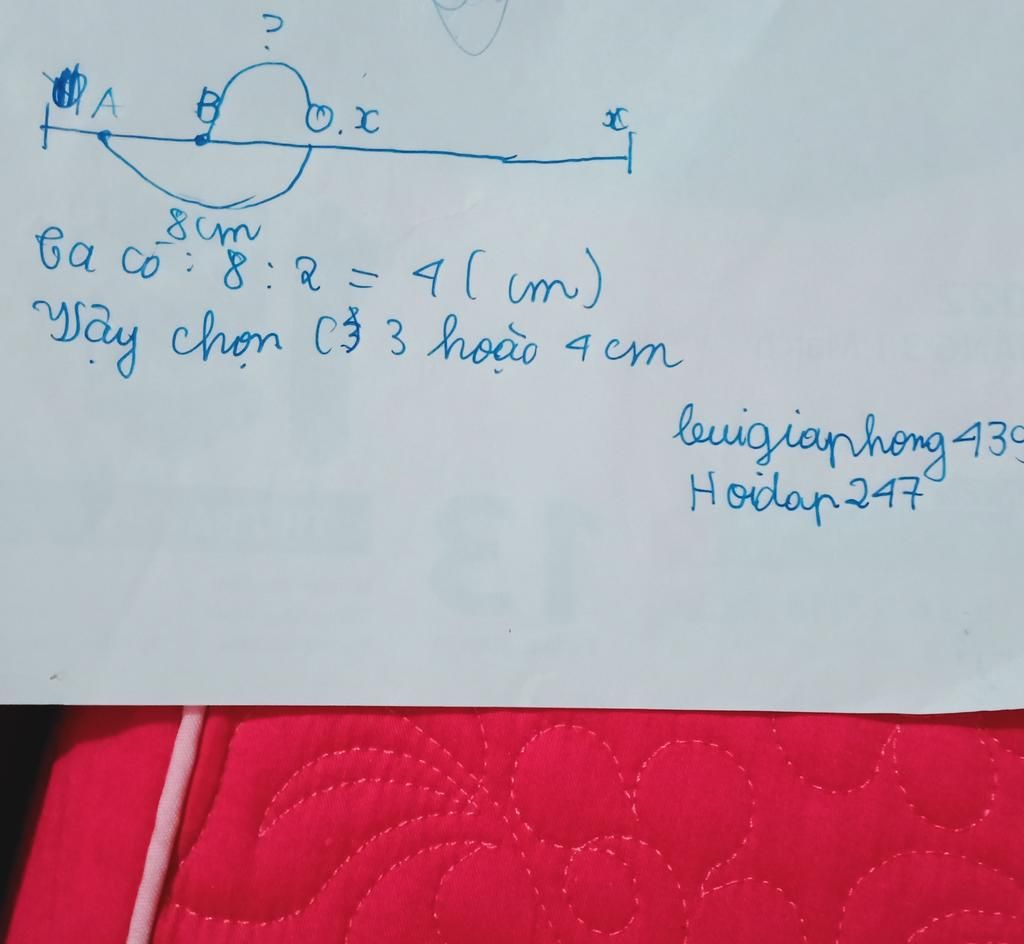 ?
A B O. x x
8cm
Ta có: 8 : 2 = 4 (cm)
Vậy chọn C 3 hoặc 4 cm
buigiaphong439
Hoidap247